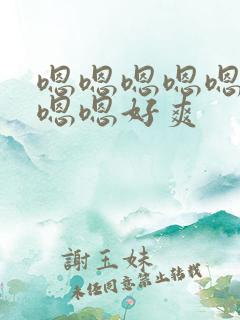 嗯嗯嗯嗯嗯
嗯嗯好爽
謝玉妹
未经同意禁止转载